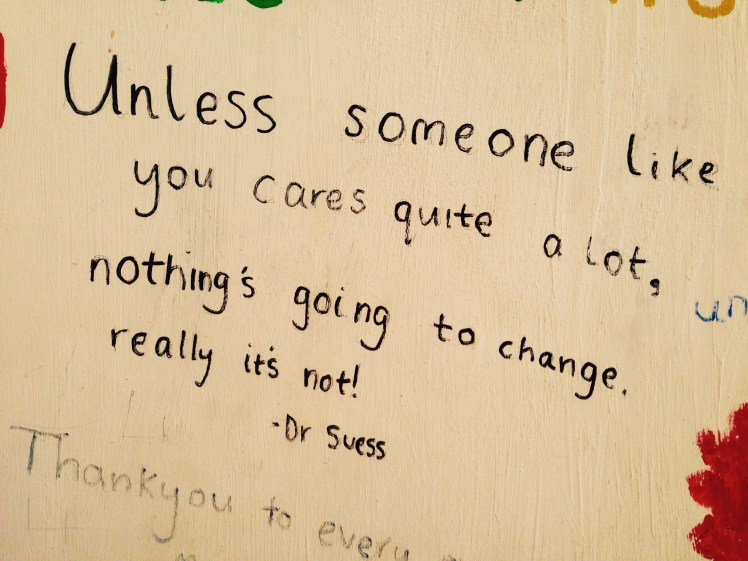 Unless someone like
you cares quite a lot,
nothing's going to change.
really it's not!
-Dr Suess
Thankyou to every